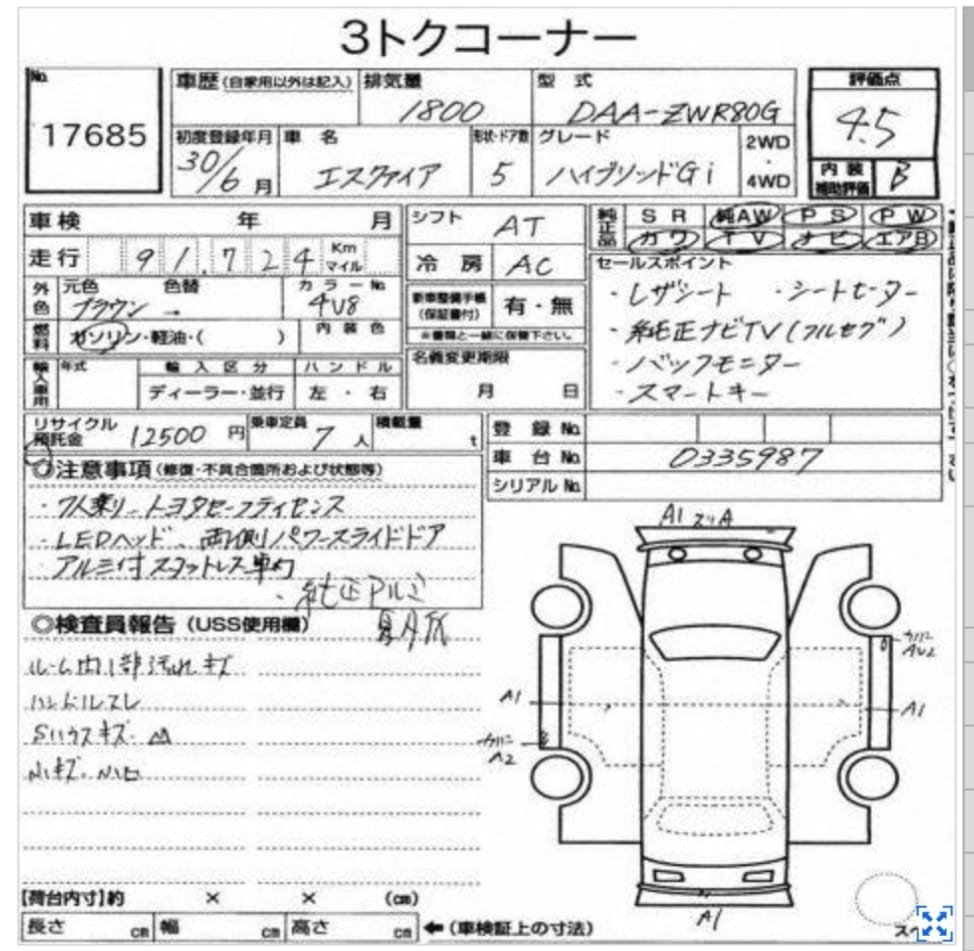 3トクコーナー
No.
17685
車歴(自家用以外は記入)
排気量
1800
型 式
DAA-ZWR80G
評価点
4.5
初度登録年月
30/6月
車 名
エスクァイア
形状・ドア数
5
グレード
ハイブリッドGi
2WD
・
4WD
内装補助評価
B
車検 年 月
シフト
AT
純正品
SR 純AW PS PW
カワ TV ナビ エアB
走行 91,724 Km マイル
冷 房
AC
セールスポイント
・レザシート ・シートヒーター
・純正ナビTV(フルセグ)
・バックモニター
・スマートキー
外色
元色 色替
ブラウン →
カラーNo.
4V8
新車整備手帳(保証書付)
有・無
※書類と一緒に保管下さい。
燃料
ガソリン・軽油・( )
内装色
輸入車用
年式
輸入区分
ディーラー・並行
ハンドル
左・右
名義変更期限
月 日
リサイクル預託金 12500 円
乗車定員 7 人
積載量 t
登 録 No.
車 台 No.
0335987
シリアル No.
◎注意事項(修復・不具合箇所および状態等)
・7人乗り トヨタセーフティセンス
・LEDヘッド、両側パワースライドドア
・アルミ付
・純正アルミ
◎検査員報告(USS使用欄)
ルーム内1部汚れキズ
ハンドルスレ
Sハウスキズ
小キズ、小凹
A1
A1
A1
A2
A1
【荷台内寸】約 × × (cm)
長さ cm 幅 cm 高さ cm ←(車検証上の寸法)